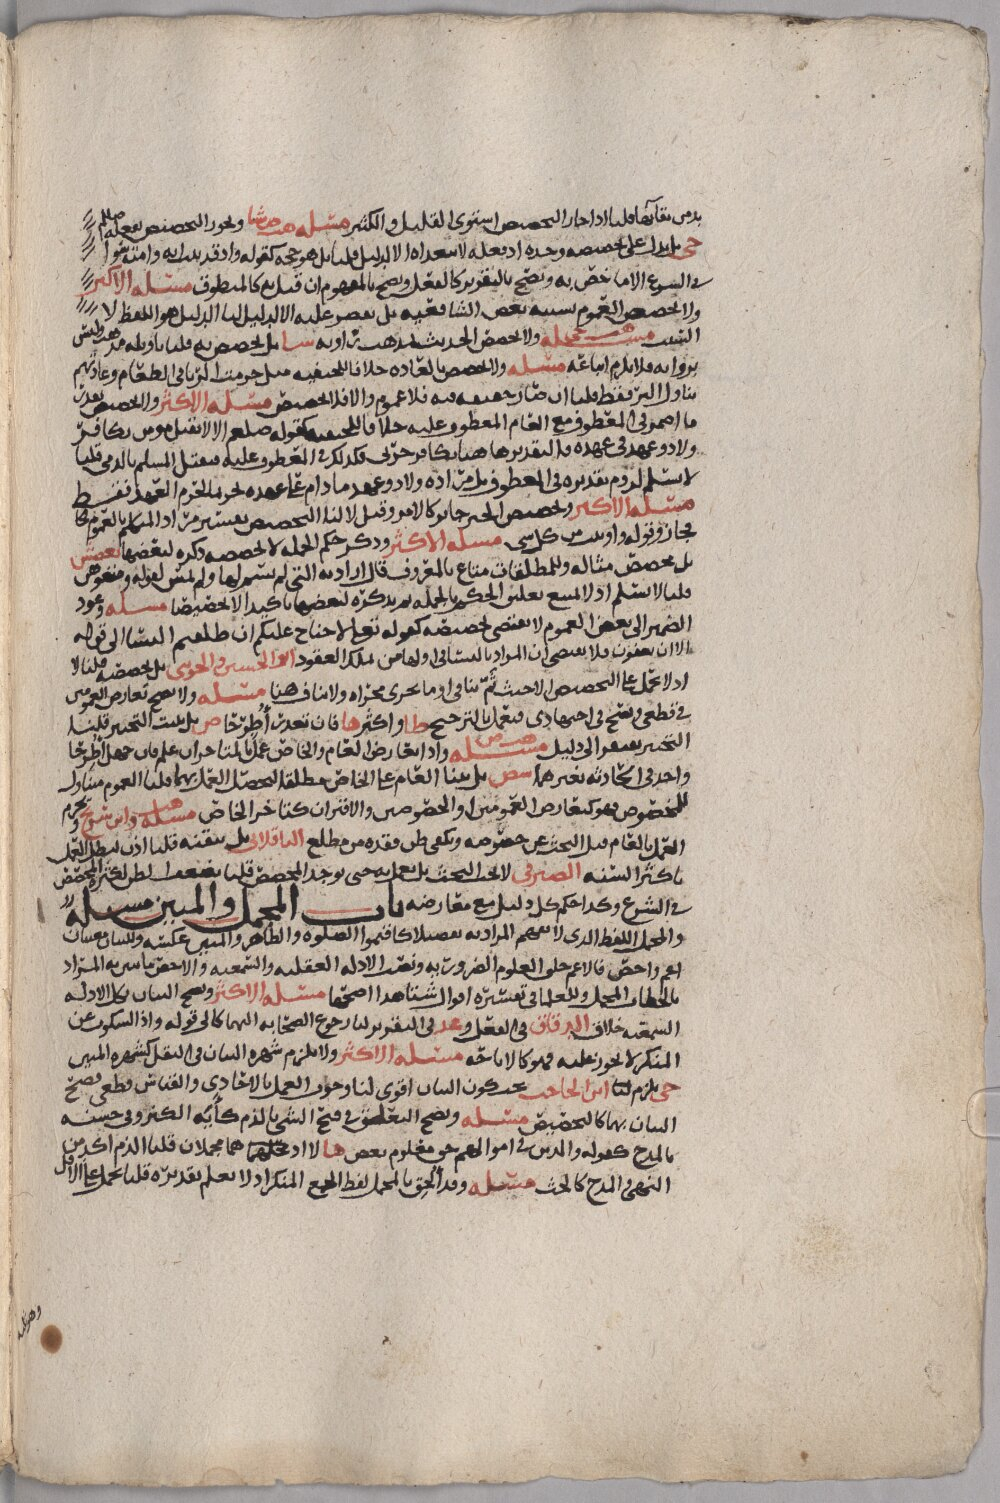 بد من بقآئها قلنا اذا جاز التخصيص استوى القليل والكثير مسئله ويجوز التخصيص بفعله صلعم
بل يدل على تخصيصه وحده اذ فعله لا يتعداه الا لدليل قلنا بل هو حجه كقوله
في الشرع الا ما خص به ويصح بالتقرير كالفعل ويصح بالمفهوم ان قيل به كالمنطوق مسئله الاكثر
ولا يخصص العموم سببه بعض الشافعيه بل يقصر عليه الا لدليل لنا الدليل هو اللفظ لا
السبب مسئله ولا يخصص الحديث بمذهب راويه بل يخصص به قلنا
بروايه فلا يلزم اتباعه مسئله ولا يخصص بالعاده خلافا للحنفيه مثل حرمت الربا في الطعام وعادتهم
تناول البر فقط قلنا ان صار حقيقه فيه فلا عموم والا فلا تخصيص مسئله الاكثر ولا يخصص
ما اضمر في المعطوف مع العام المعطوف عليه خلافا للحنفيه كقوله صلعم الا لا يقتل مومن بكافر
ولا ذو عهد في عهده قالوا التقدير هاهنا بكافر حربي فكذلك في المعطوف عليه فيقتل المسلم بالذمي قلنا
لا نسلم لزوم تقديره في المعطوف بل مراده ولا ذو عهد ما دام على عهده فقط
مسئله الاكثر وتخصيص الخبر جايز كالامر وقيل لا لنا التخصيص تفسير مراد المتكلم بالعموم
مجاز وقوله واوتيت من كل شي مسئله الاكثر وذكر حكم الجمله لا يخصصه ذكره لبعضها
بل يخصص مثاله وللمطلقات متاع بالمعروف قال اراد به التي لم يسم لها ولم تمس لقوله ومتعوهن
قلنا لا نسلم اذ لا يمنع تعليق الحكم بالجمله ثم يذكره لبعضها تاكيدا لا تخصيصا مسئله وعود
الضمير الى بعض العموم لا يقتضي تخصيصه كقوله تعلى لا جناح عليكم ان طلقتم النسا الى قوله
الا ان يعفون فلا يقتضي ان المراد بالنسا في اولها من تملك العقود ابو الحسين والجويني بل يخصصه قلنا لا
اذ لا يحمل على التخصيص الا حيث ثم تنافي او ما يجري مجراه ولا تنافي هنا مسئله ولا يصح تعارض العمومين
في قطعي ويصح في اجتهادي فيعمل بالترجيح طا واكثرها فان تعذر اطرحا ص بل يثبت التخيير قلنا
التخيير يفتقر الى دليل مسئله واذا تعارض العام والخاص عمل بالمتاخر ان علم فان جهل اطرحا
واخذ في الحادثه بغيرهما بل يبنا العام على الخاص مطلقا ليحصل العمل بهما قلنا العموم متناول
للخصوص فهو كتعارض العمومين او الخصوصين والاقتران كتاخر الخاص مسئله وابن شريح ويحرم
العمل بالعام قبل البحث عن خصصه ويكفي ظن فقده من مطلع الباقلاني بل تيقنه قلنا اذن لبطل العمل
باكثر السنه الصيرفي لا يجب البحث بل يعمل به حتى يوجد المخصص قلنا يضعف الظن لكثره المخصص
في الشرع وكذا حكم كل دليل مع معارضه باب المجمل والمبين مسئله
والمجمل اللفظ الذي لا يفهم المراد به تفصيلا كاقيموا الصلوه والظاهر والمبين عكسه وللبيان معنيان
اعم واخص فالاعم خلق العلوم الضروريه ونصب الادله العقليه والسمعيه والاخص ما يبين به المراد
بالخطاب المجمل وللعلما في تفسيره اقوال شتا هذا اصحها مسئله الاكثر ويصح البيان بكل الادله
السمعيه خلاف الدقاق في الفعل وعد في التقرير لنا رجوع الصحابه اليهما كالى قوله واذ السكوت عن
المنكر لا يجوز عليه فهو كالاباحه مسئله الاكثر ولا يلزم شهره البيان في النقل كشهره المبين
خي يلزم لنا ابن الحاجب يكون البيان اقوى لنا وجوب العمل بالاحادي والقياس قطعي فصح
البيان بهما كالتخصيص مسئله ويصح التعلق في قبح الشي بالذم كآيه الكنز وفي حسنه
بالمدح كقوله والذين في اموالهم حق معلوم بعض ها لا اذ هما مجملان قلنا الذم اكد من
النهي والمدح كالحث مسئله وقد الحق بالمجمل لفظ الجمع المنكر اذ لا يعلم تقديره قلنا يحمل على الاقل